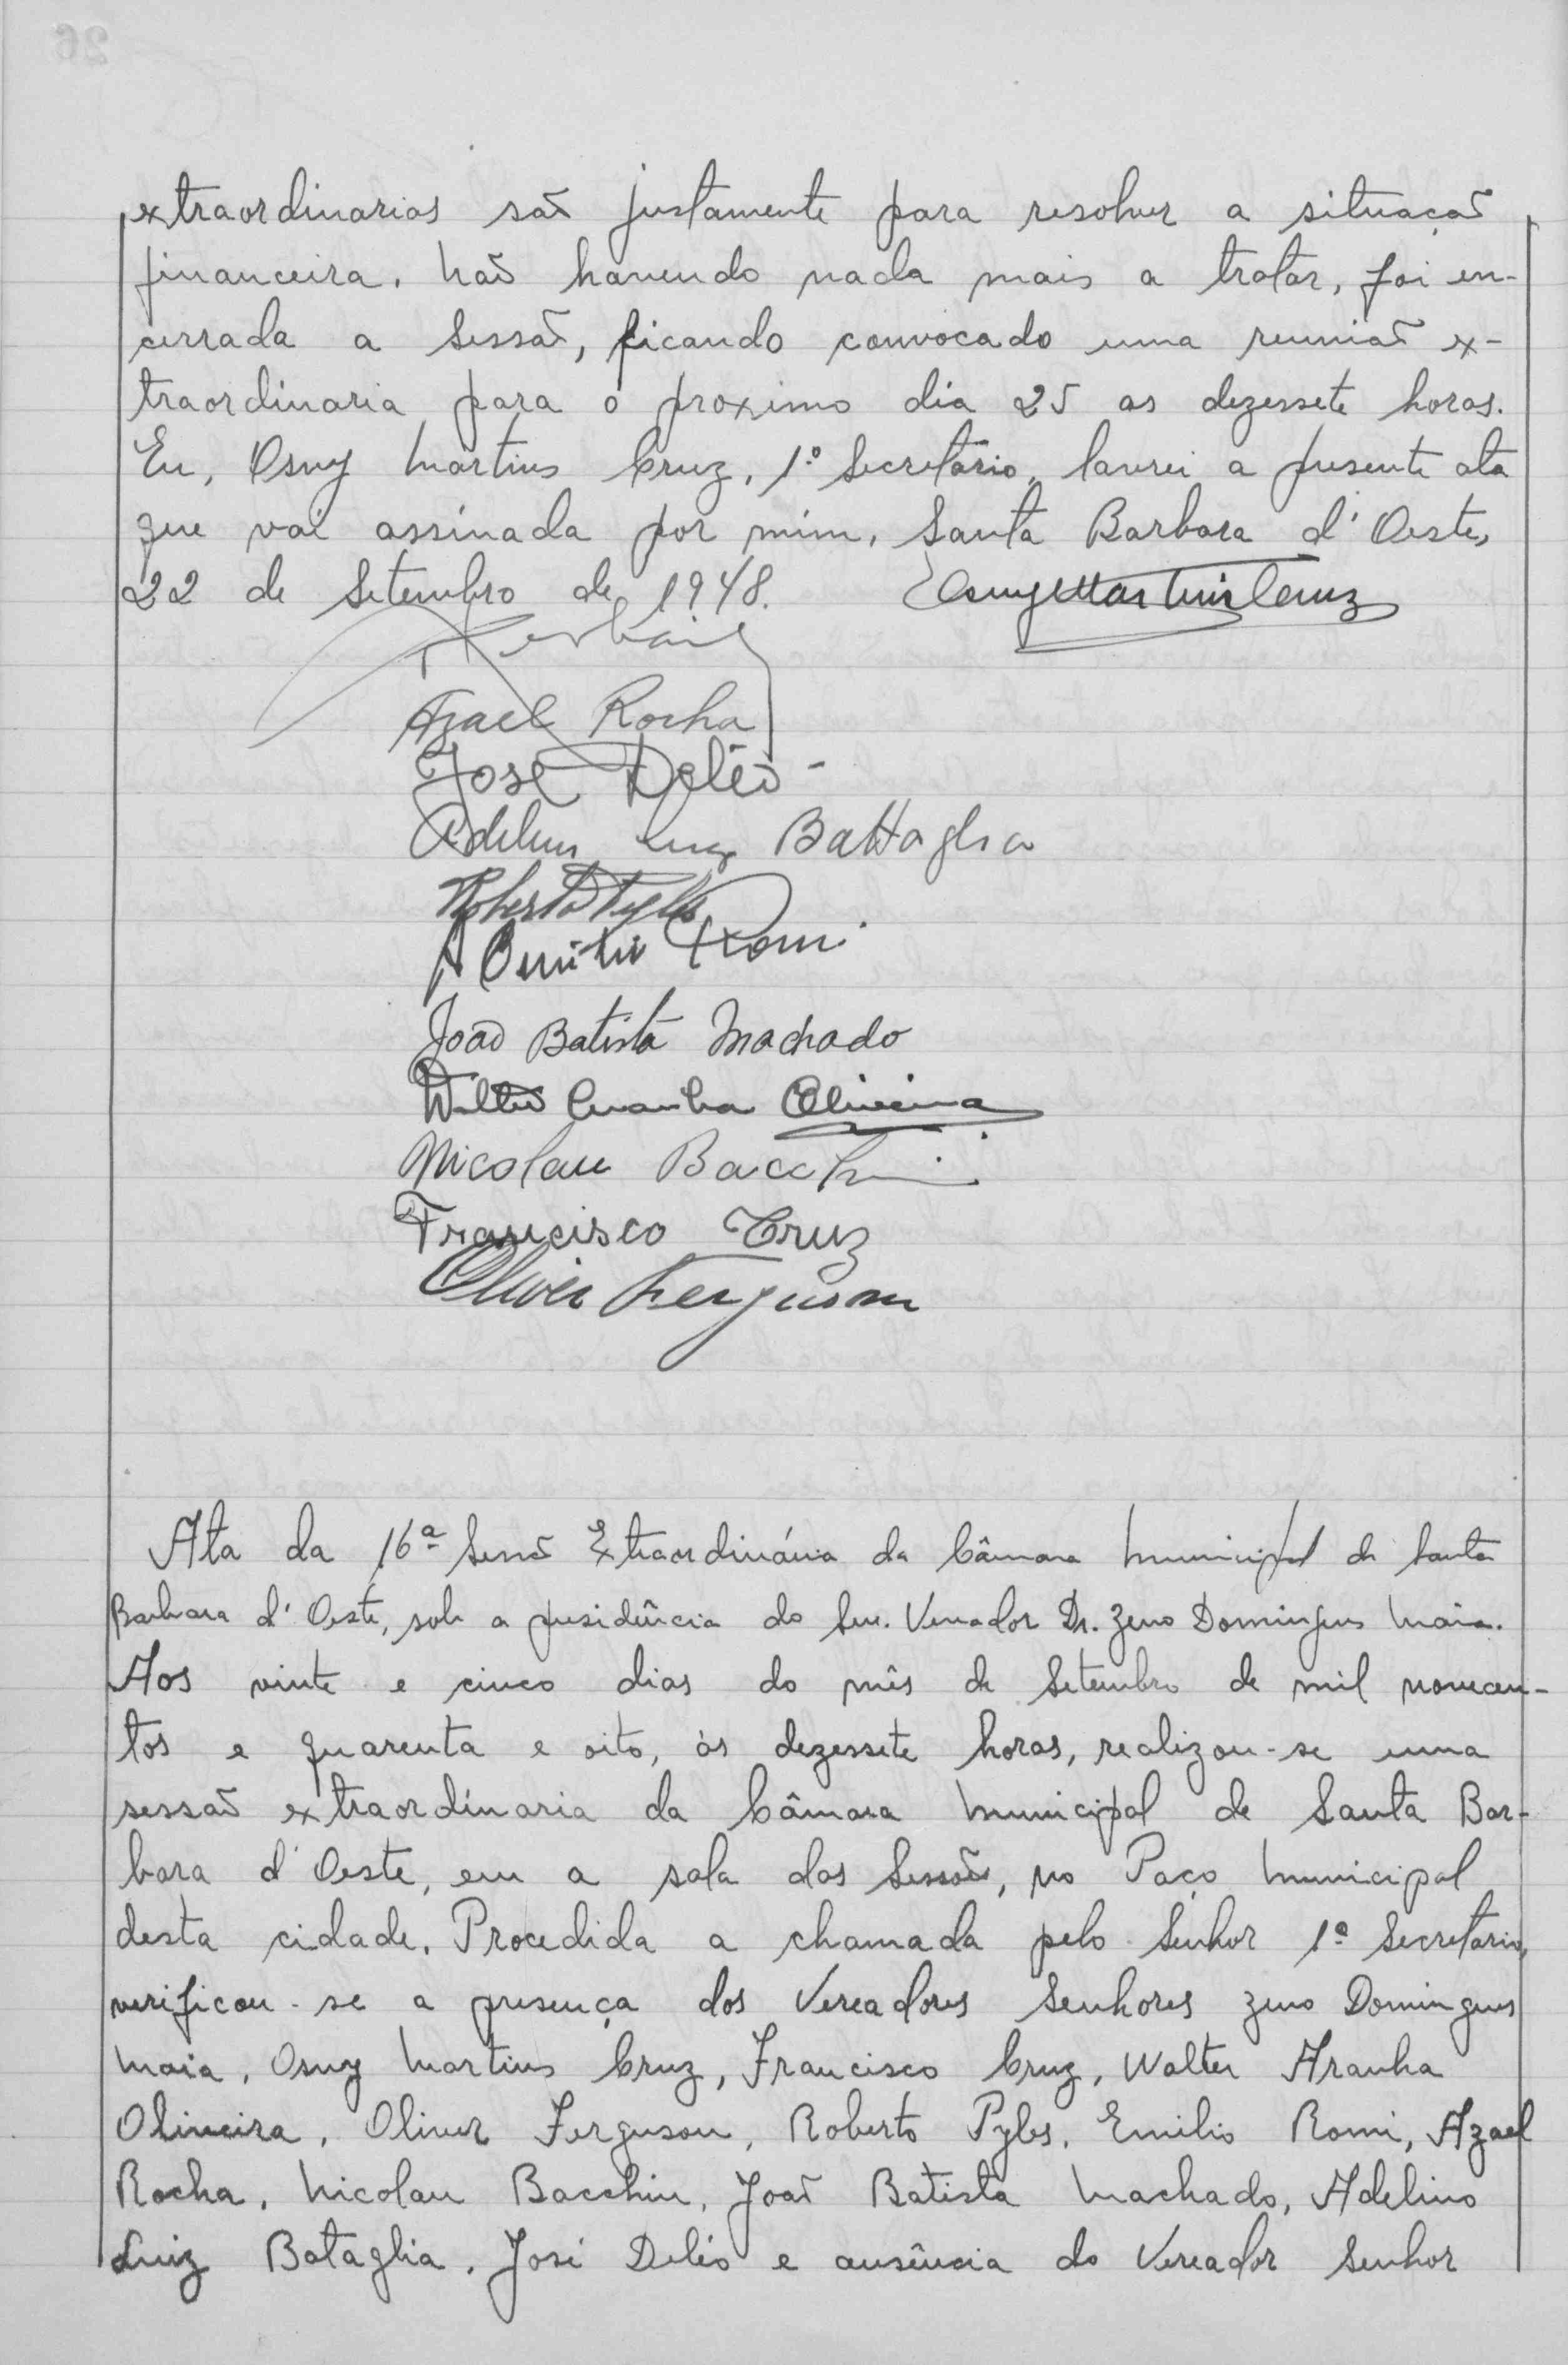 extraordinarias são justamente para resolver a situação
financeira. Não havendo nada mais a tratar, foi en-
cerrada a Sessão, ficando convocado uma reunião ex-
traordinaria para o proximo dia 25 as dezessete horas.
Eu, Osny Martins Cruz, 1º Secretário, lavrei a presente ata
que vai assinada por mim. Santa Barbara d'Oeste,
22 de Setembro de 1948. Osny Martins Cruz
Azael Rocha
José Deléo
Adelino Luiz Battaglia
Roberto Pyles
Romi
João Batista Machado
Walter Aranha Oliveira
Nicolau Bacchin
Francisco Cruz
Oliver Ferguson
Ata da 16ª Sessão Extraordinária da Câmara Municipal de Santa
Barbara d'Oeste, sob a presidência do Snr. Vereador Dr. Zeno Domingues Maia.
Aos vinte e cinco dias do mês de Setembro de mil novecen-
tos e quarenta e oito, ás dezessete horas, realizou-se uma
sessão extraordinaria da Câmara Municipal de Santa Bar-
bara d'Oeste, em a sala das Sessões, no Paço Municipal
desta cidade. Procedida a chamada pelo Senhor 1º Secretario,
verificou-se a presença dos Vereadores Senhores Zeno Domingues
Maia, Osny Martins Cruz, Francisco Cruz, Walter Aranha
Oliveira, Oliver Ferguson, Roberto Pyles, Emilio Romi, Azael
Rocha, Nicolau Bacchin, João Batista Machado, Adelino
Luiz Bataglia, José Deléo e ausência do Vereador Senhor